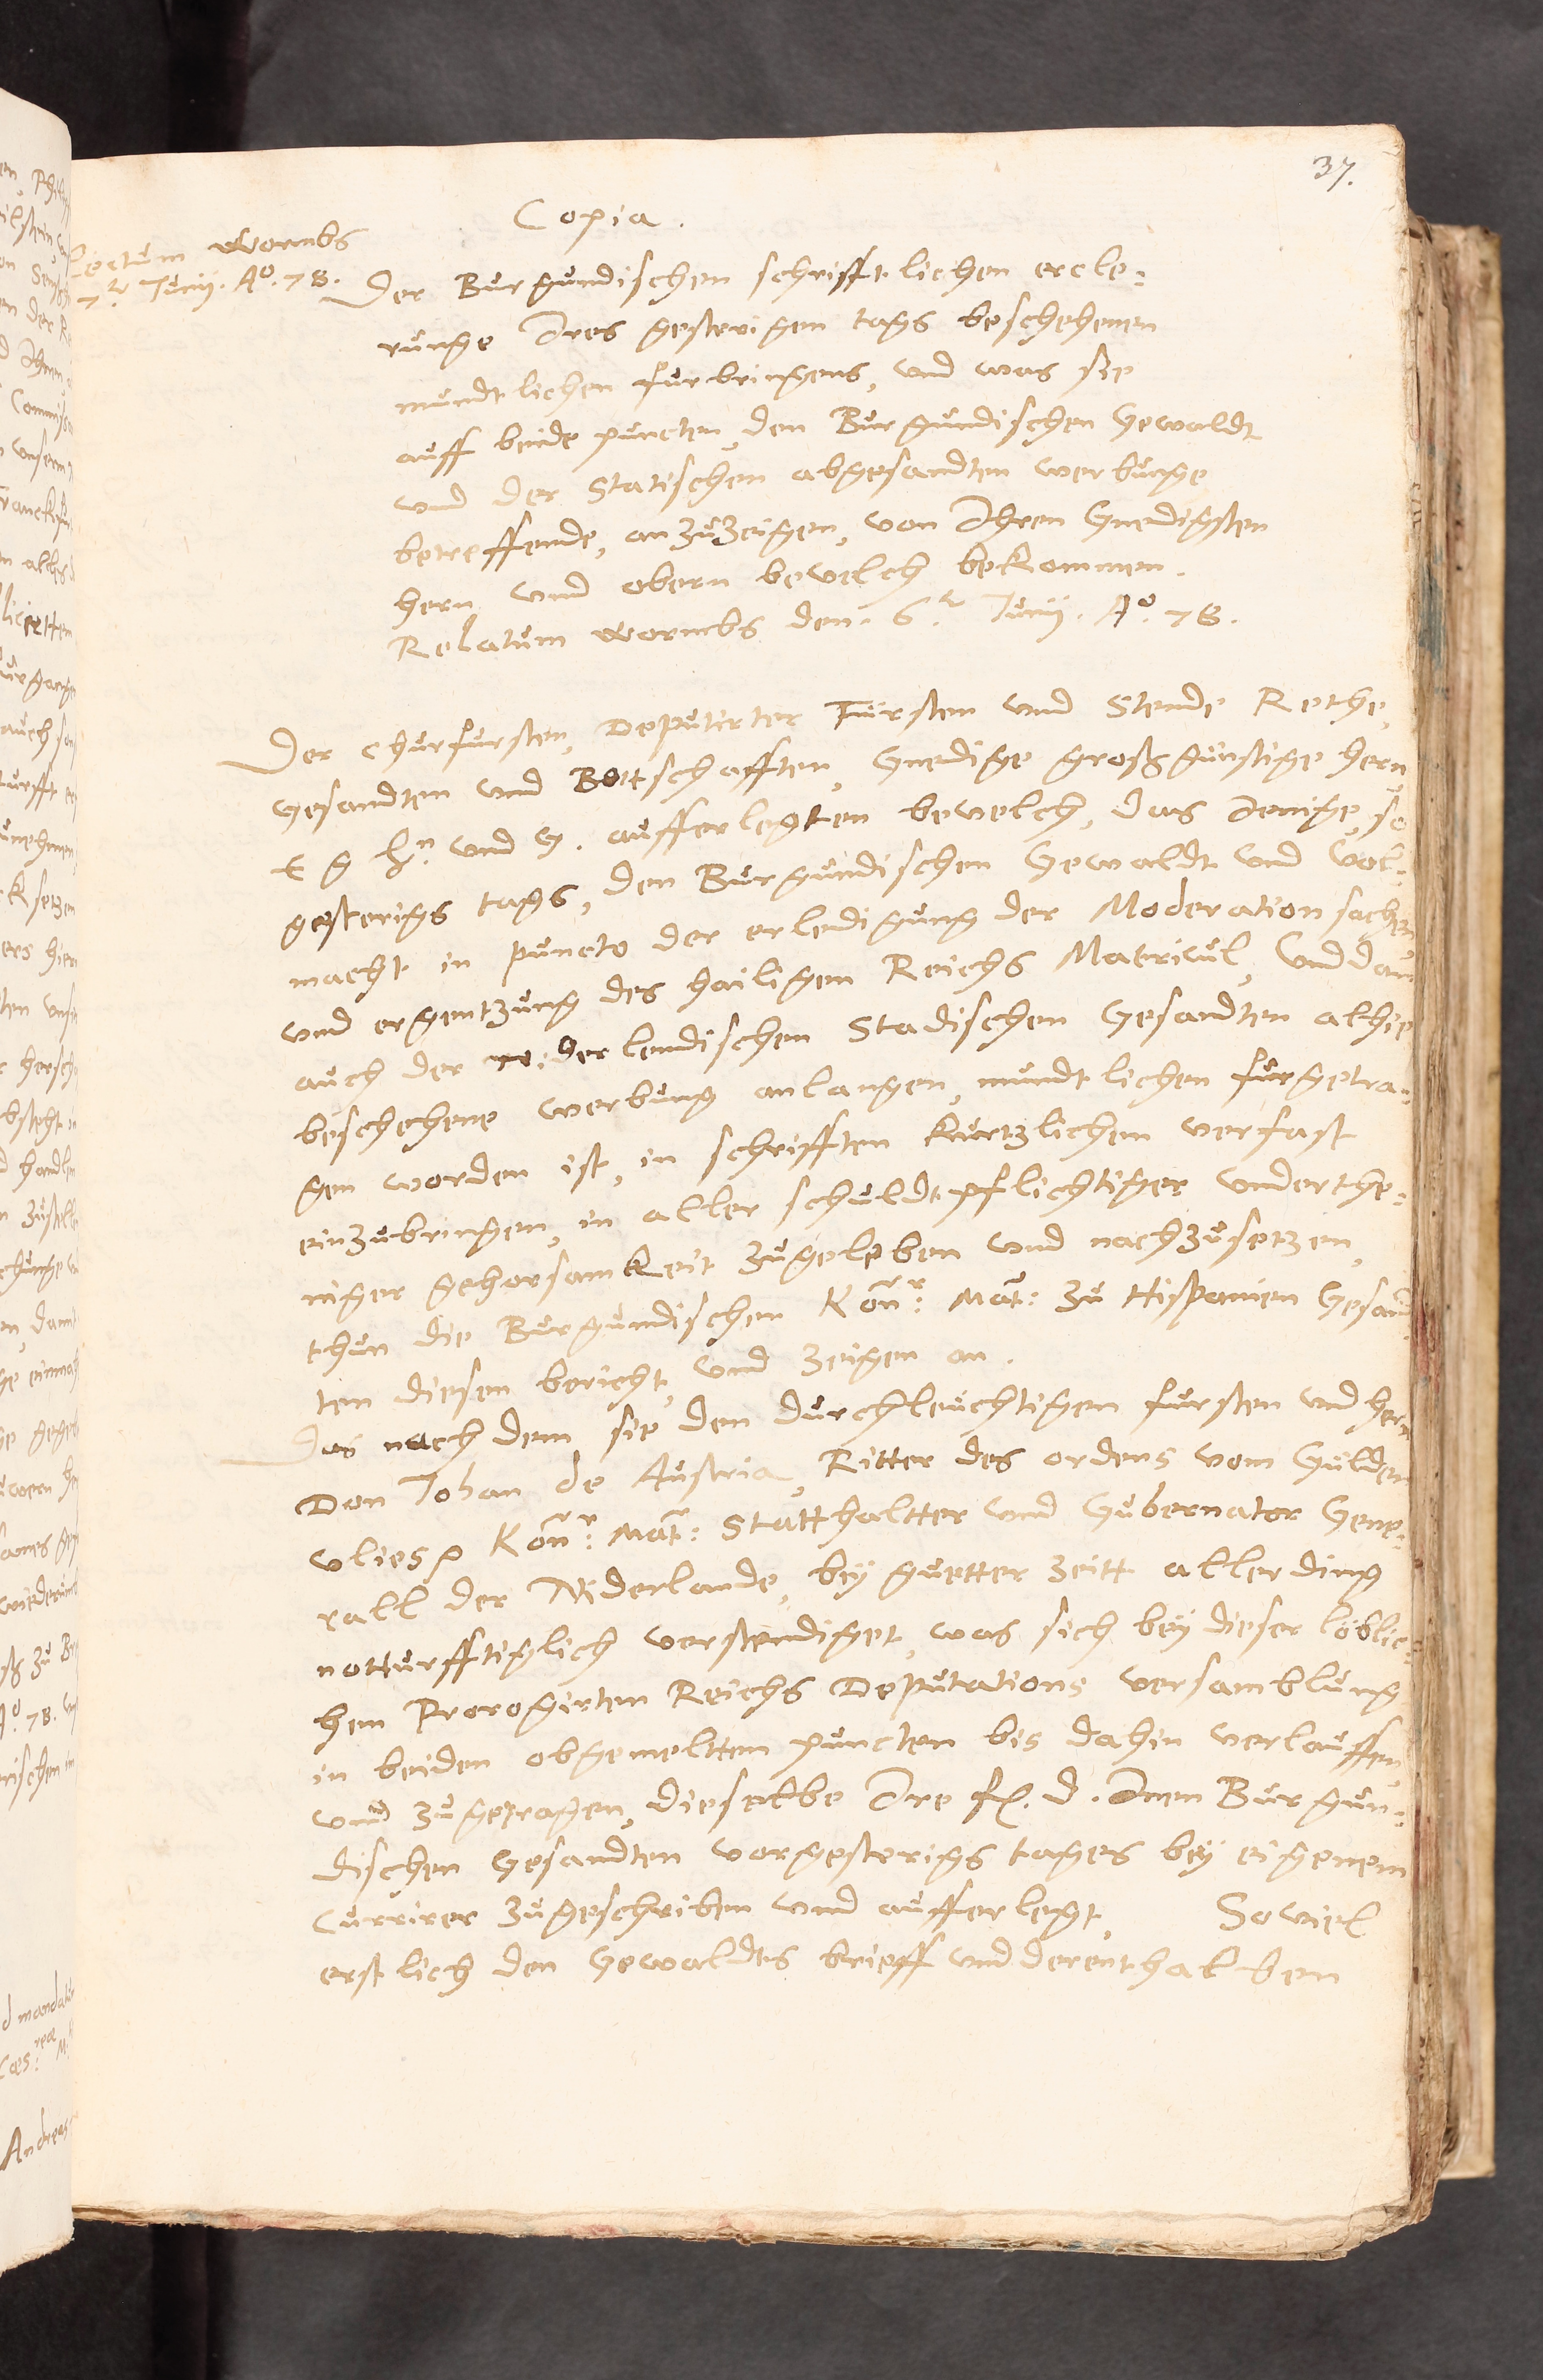 37.
Copia.
Lectum Wormbs
7.t Junij. Ao. 78.
Der Burgundischen schrifftlichen ercle-
runge Ires gesterigen tags beschehenen
mundtlichen furbringens, und was sie
auff beide puncten, den Burgundischen Gewaldt
und der Statischen abgesandten werbunge
betreffende, anzuzeigen, von Ihren Gnedigsten
hern und obern bevelch bekommen.
Relatum Wormbs den. 6.t Junij. Ao. 78.
Der Churfursten, Deputirter Fürsten und Stende Rethe,
Gesandten und Bottschafften, Gnedige großgünstige hern,
E g hn und G. aufferlegten bevelch, das Jenige, so
gesterigs tags, den Burgundischen Gewaldt und vol-
macht in puncto der erledigung der Moderation sachen
und ergentzung des hailigen Reichs Matricul, und dan
auch der niderlendischen Stadischen Gesandten alhie
beschehene werbung anlangen, mundtlichen furgetra-
gen worden ist, in schrifften kurtzlichen verfast
einzubringen, in aller schuldtpflichtiger underthe-
niger gehorsamkeit zugeleben und nachzusetzen,
thun die Burgundischen Kön:r Mat: zu Hispanien Gesand-
ten diesen bericht, und zeigen an.
Das nach dem sie den durchleuchtigen fursten und hern
Don Johan de Austria, Ritter des ordens vom Gülden
vlies Kön:r Mat: Statthaltter und Gubernator Gene-
rall der Niderlande, bey guetter zeitt allerding
notturfftiglich verstendiget, was sich bey dieser löblic-
hen Prorogirten Reichs Deputations versamblung
in beiden obgemeltten puncten bis dahin verlauffen,
und zugetragen, dieselbe Ire f. d. Inen Burgun-
dischen Gesandten vorgesterigs tages bey eigenem
Currirer zugeschriben und aufferlegt, Soviel
erstlich den Gewaldts brieff und derenthalben